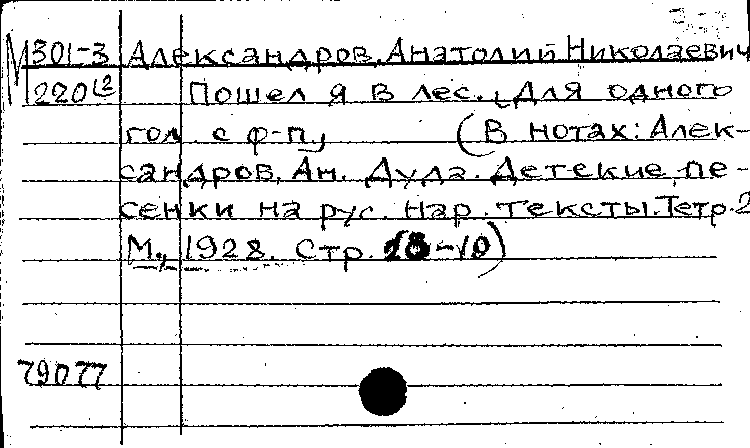 М 301-3 Александров, Анатолий Николаевич
220(2 Пошел я в лес. Для одного
гол. с ф-п, (В нотах: Алек-
сандров, Ан. Дуда. Детские пе-
сенки на рус. нар. тексты. Тетр. 2
М., 1928. Стр. -10)
79077